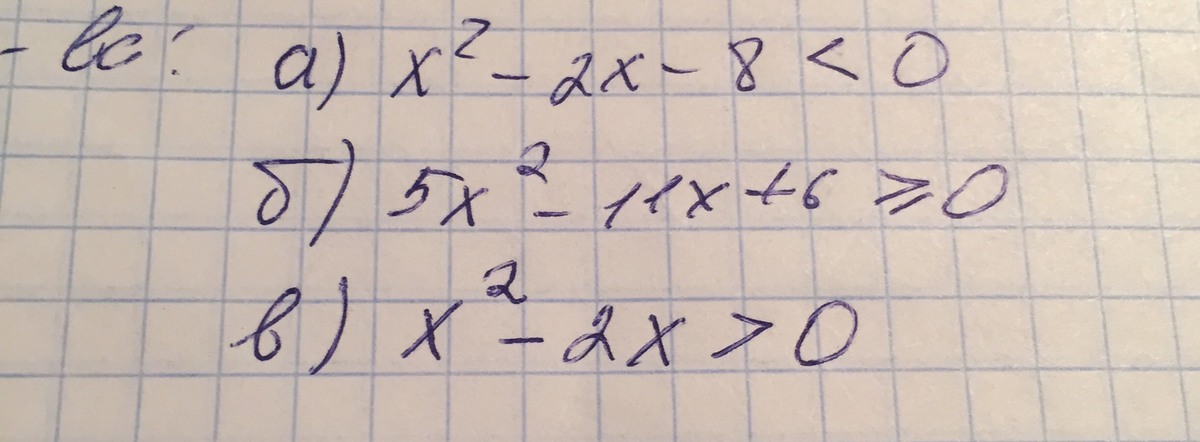 - вс: а) x² - 2x - 8 < 0
б) 5x² - 11x + 6 ≥ 0
в) x² - 2x > 0